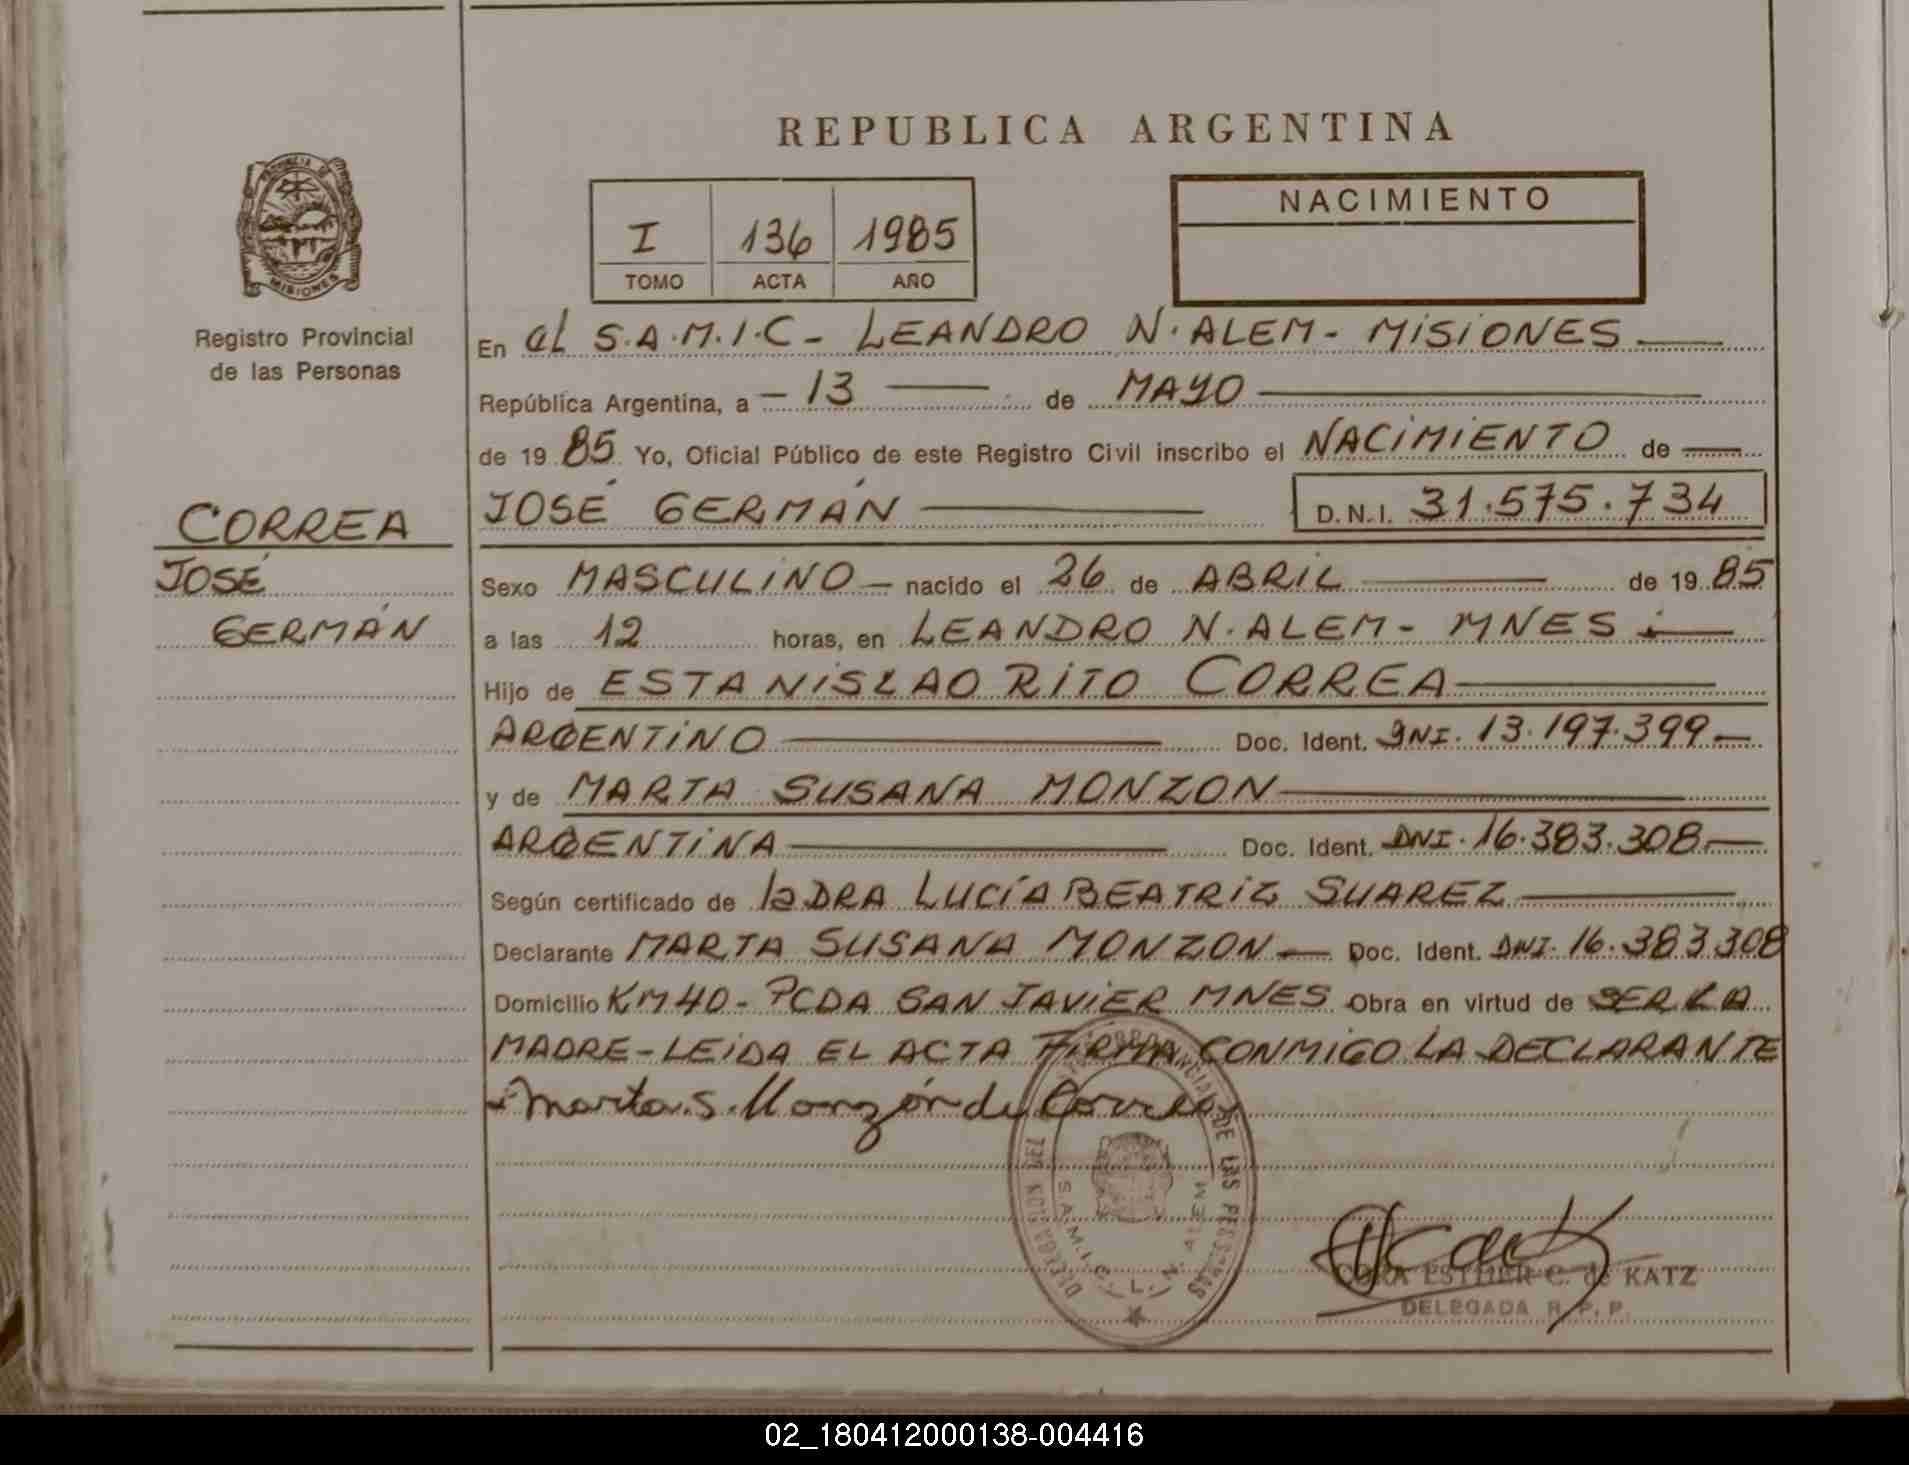 REPUBLICA ARGENTINA
PROVINCIA DE
MISIONES
Registro Provincial
de las Personas
I 136 1985
TOMO ACTA AÑO
NACIMIENTO
En el S.A.M.I.C - LEANDRO N. ALEM - MISIONES
República Argentina, a - 13 de MAYO
de 19 85 Yo, Oficial Público de este Registro Civil inscribo el NACIMIENTO de
JOSÉ GERMÁN D.N.I. 31.575.734
CORREA
JOSÉ
GERMÁN
Sexo MASCULINO nacido el 26 de ABRIL de 19 85
a las 12 horas, en LEANDRO N. ALEM - MNES
Hijo de ESTANISLAO RITO CORREA
ARGENTINO Doc. Ident. DNI. 13.197.399
y de MARTA SUSANA MONZON
ARGENTINA Doc. Ident. DNI. 16.383.308
Según certificado de la DRA LUCÍA BEATRIZ SUAREZ
Declarante MARTA SUSANA MONZON Doc. Ident. DNI. 16.383.308
Domicilio KM 40 - PCDA SAN JAVIER MNES Obra en virtud de SER LA
MADRE - LEIDA EL ACTA FIRMA CONMIGO LA DECLARANTE
Marta S. Monzón de Correa
DE LAS PERSONAS
S.A.M.I.C. L. N. ALEM
CORA ESTHER C. de KATZ
DELEGADA R. P. P.
02_180412000138-004416